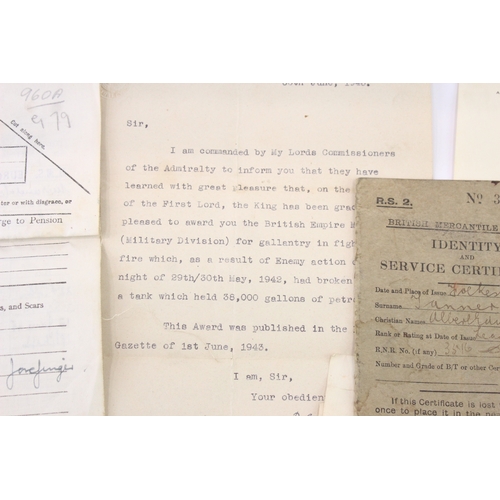 960A
Cut along here.
ter or with disgrace, or
rge to Pension
s, and Scars
forefinger
June, 1943.
Sir,
I am commanded by My Lords Commissioners
of the Admiralty to inform you that they have
learned with great pleasure that, on the
of the First Lord, the King has been grac
pleased to award you the British Empire M
(Military Division) for gallantry in figh
fire which, as a result of Enemy action o
night of 29th/30th May, 1942, had broken
a tank which held 38,000 gallons of petro
This Award was published in the
Gazette of 1st June, 1943.
I am, Sir,
Your obedien
R.S. 2.
No 3
BRITISH MERCANTILE
IDENTITY
AND
SERVICE CERTIF
Date and Place of Issue
Surname
Christian Names Albert
Rank or Rating at Date of Issue
R.N.R. No. (if any)
Number and Grade of B/T or other Cer
If this Certificate is lost
once to place it in the ne